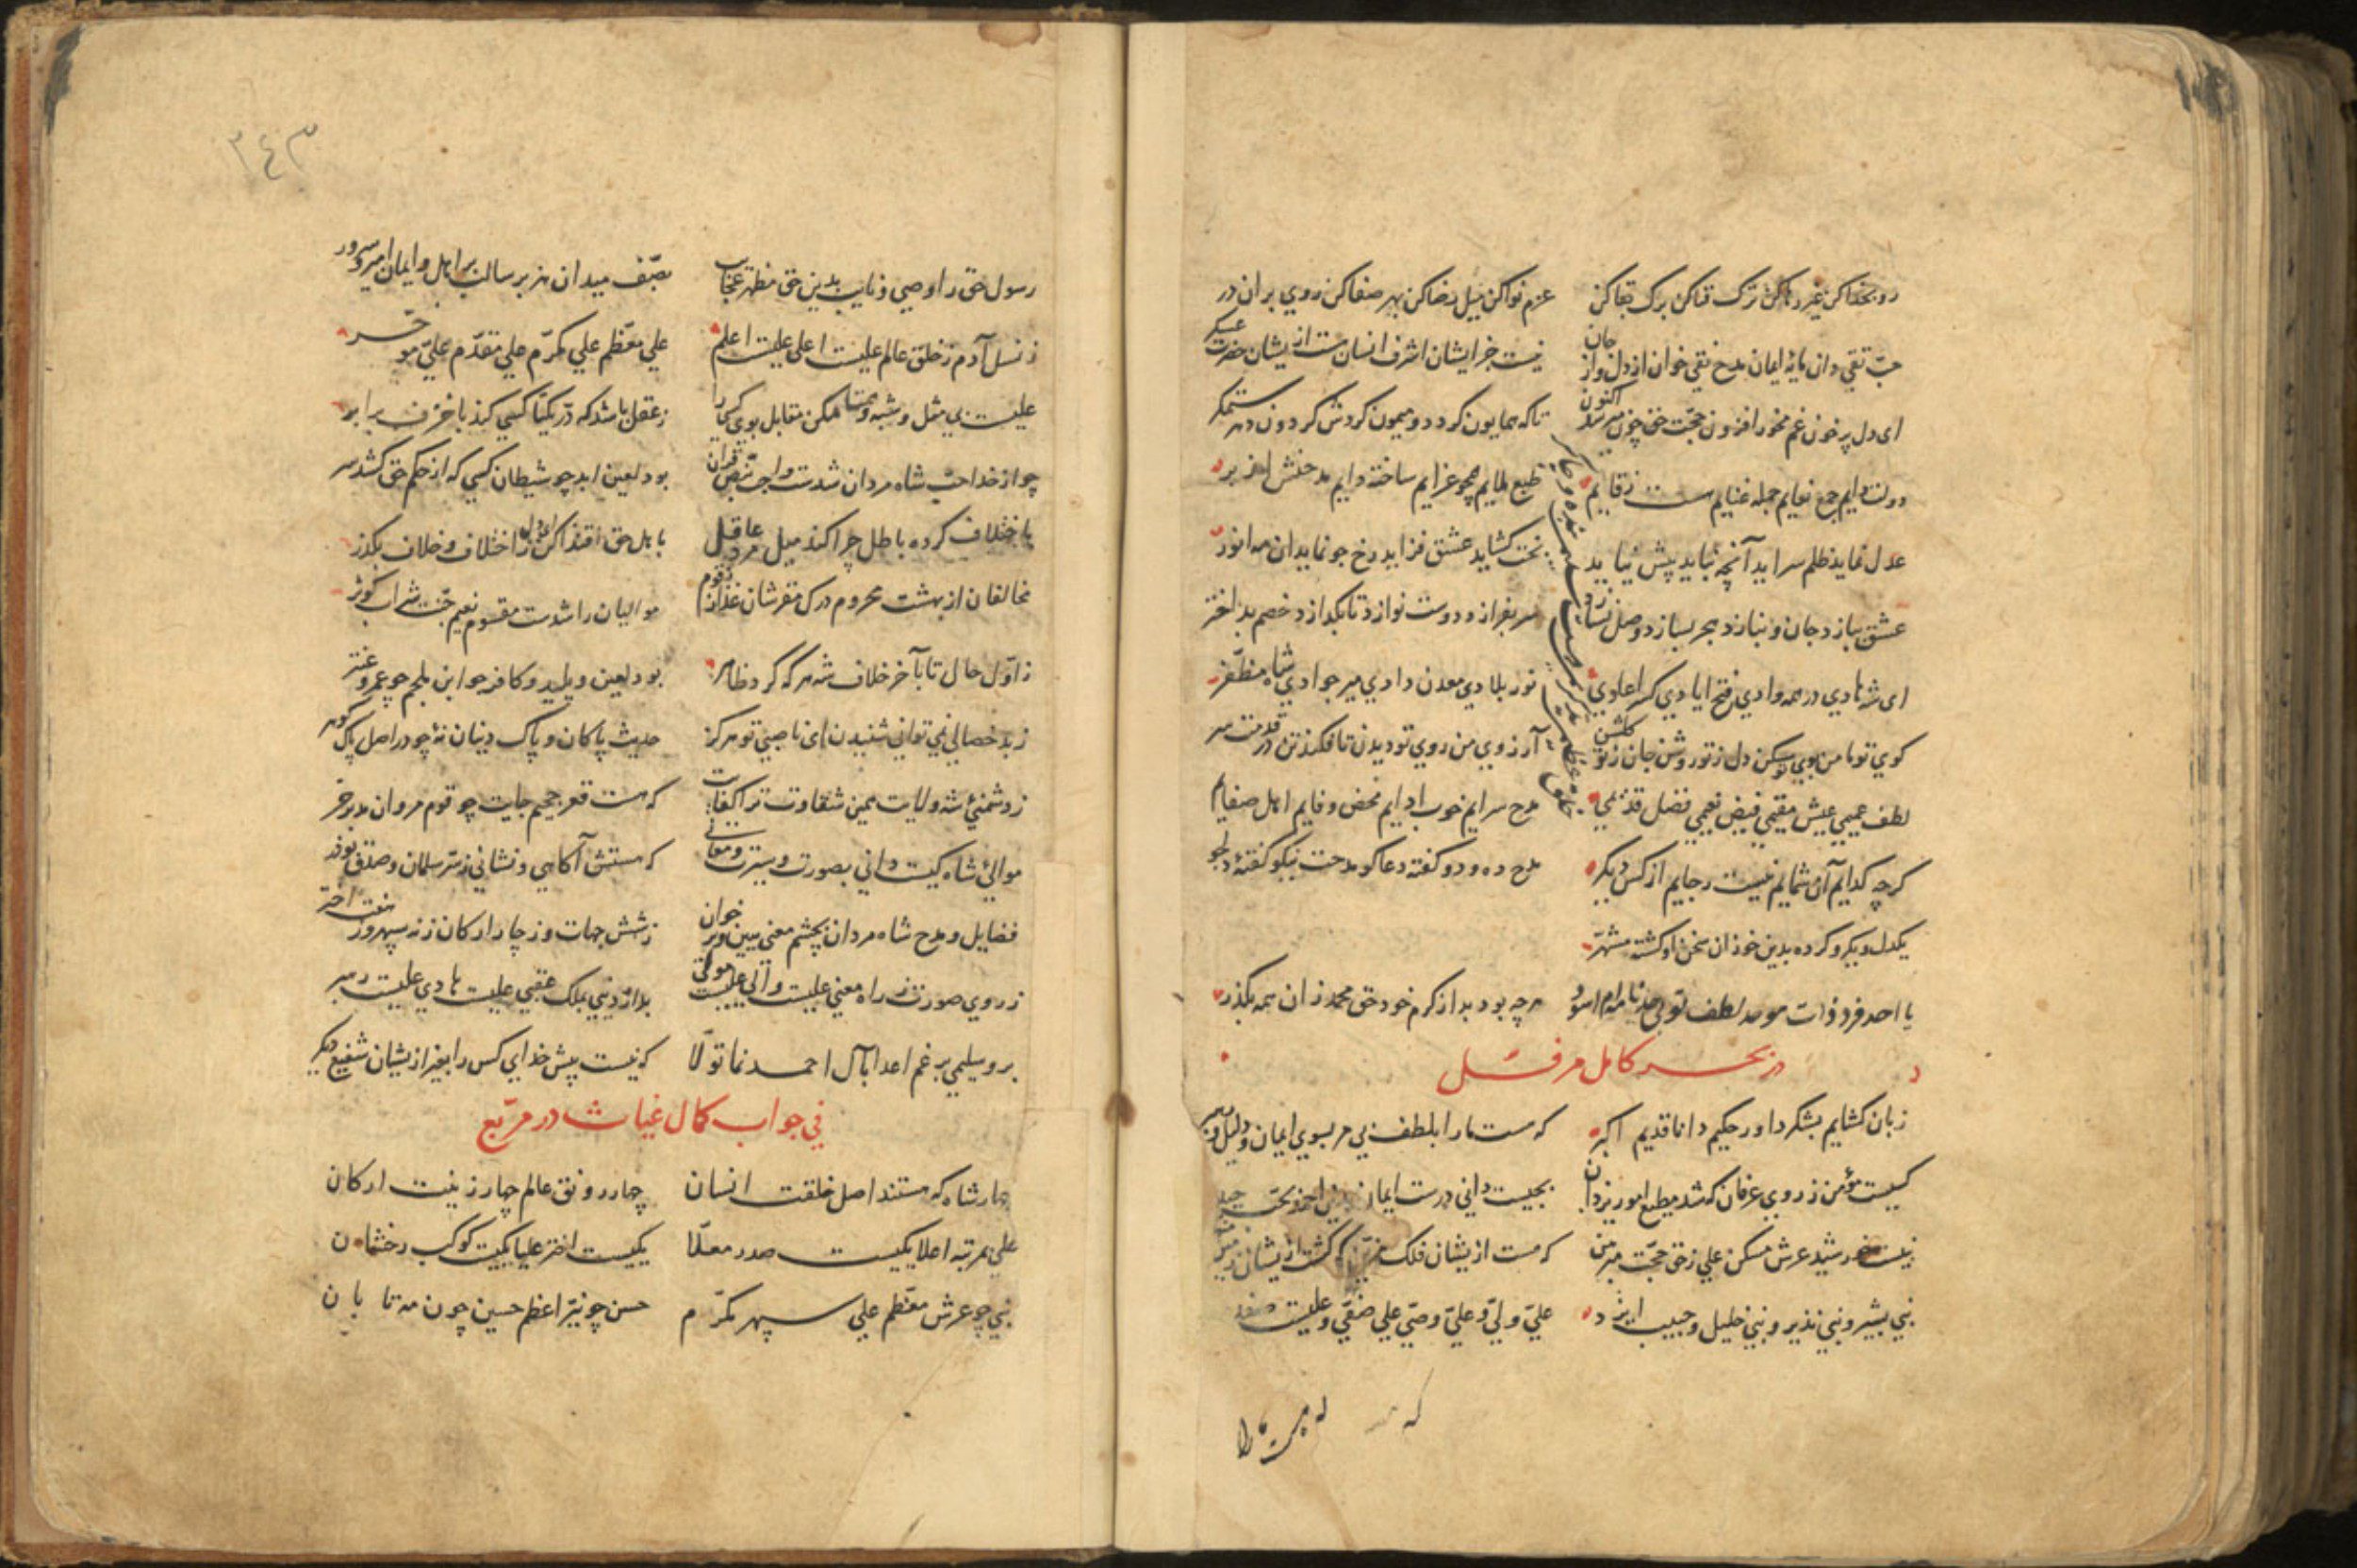 رو بخدا کن ترک فنا کن برک بقا کن عزم نوا کن میل رضا کن بهر صفا کن روی بران در
حب تقی دان مایهٔ ایمان مدح نقی خوان از دل و از جان نیست جز ایشان اشرف انسان هست از یشان حضرت عسکر
ای دل پر خون غم مخور افزون حجت حق چون میرسد اکنون تا که همایون کردد و میمون کردش کردون
دولت دایم جمع نعایم جمله غنایم طبع ملایم همچو غرایم ساخته دایم مدحتش از بر
عدل نماید ظلم سر آید آنچه نباید پیش نیاید بخت کشاید عشق فزاید رخ چو نماید ان مه انور
عشق ببازد جان و بنازد هجر بسازد وصل سر بفرازد دوست نوازد تا بکدازد خصم بد اختر
ای شه هادی در همه وادی فتح ایادی کسر اعادی نور بلادی معدن دادی میر جوادی شاه مظفر
کوی تو مامن بوی تو کلشن دل ز تو روشن جان ز تو آرزوی من روی تو دیدن تا فکند تن در قدمت سر
لطف عمیمی عیش مقیمی فیض نعیمی فضل قدیمی مدح سرایم خوب ادایم محض وفایم اهل صفایم
کرچه کدایم آن شمایم نیست رجایم از کس دیکر مدح ده و دو کفته دعا کو مدحت نیکو کفتهٔ دلجو
یکدل و یکرو کرده بدین خو زان سخن او کشته مشتهر
یا احد فرد ذات هر چه بود بد از کرم خود حق محمد زان همه بکذر
در بحر کامل مرفل
زبان کشایم بشکر داور حکیم دانا قدیم اکبر که هست ما را بلطف بی مر بسوی ایمان دلیل و رهبر
کیست مؤمن ز روی عرفان که شد مطیع امور یزدان بچیست دانی درست ایمان
نبیست خورشید عرش مسکن علی ز حق حجت مبرهن که هست از یشان فلک مزین که کشت از یشان
نبی بشیر و نبی نذیر و نبی خلیل و حبیب ایزد علی ولی و علی وصی علی صفی و علیست صفدر
که هست ما را
٢٤٣
رسول حق را وصی و نایب بدین حق مظهر عجایب بصف میدان هزبر سالب بر اهل ایمان امیر و سرور
ز نسل آدم ز خلق عالم علیست اعلی علیست اعلم علی معظم علی مکرم علی مقدم علی موخر
علیست بی مثل و شبه و همتا مکن مقابل بوی کسی را ز عقل باشد که در یکتا کسی کند با خزف برابر
چو از خدا حب شاه مردان شدست واجب بنص قرآن بود لعین ابد چو شیطان کسی که از حکم حق کشد سر
باختلاف کرده باطل چرا کند میل مرد عاقل باهل حق اقتدا کن ای دل ز اختلاف و خلاف بکذر
مخالفان از بهشت محروم درک مقرشان غذا ز زقوم موالیان را شدست مقسوم نعیم جنت شراب کوثر
ز اول حال تا بآخر خلاف شه هر که کرد ظاهر بود لعین و پلید و کافر چو ابن ملجم چو عمرو عنتر
ز بد خصالی نمی توانی شنیدن ای ناصبی تو هرکز حدیث پاکان و پاک دینان نهٔ چو در اصل پاک کوهر
ز دشمنیٔ شه ولایت همین شقاوت ترا کفایت که هست قعر جحیم جایت چو قوم مروان
موالیٔ شاه کیست دانی بصورت و سیرت و معانی که هستش آکاهی و نشانی ز سر سلمان و صدق بوذر
فضایل و مدح شاه مردان بچشم معنی ببین و بر خوان ز شش جهات و ز چار ارکان ز نه سپهر و ز هفت اختر
ز روی صورت ز راه معنی علیست والی علیست مولی بدار دنیی بملک عقبی علیست هادی علیست رهبر
برو سلیمی برغم اعدا بآل احمد نما تولا که نیست پیش خدای کس را بغیر از یشان شفیع دیکر
فی جواب کمال غیاث در مربع
چهار شاه که هستند اصل خلقت انسان چهار رونق عالم چهار زینت ارکان
علی مرتبه اعلا یکیست صدر معلا یکیست اختر علیا یکیست کوکب رخشان
نبی چو عرش معظم علی سپهر مکرم حسن چو نیر اعظم حسین چون مه تابان